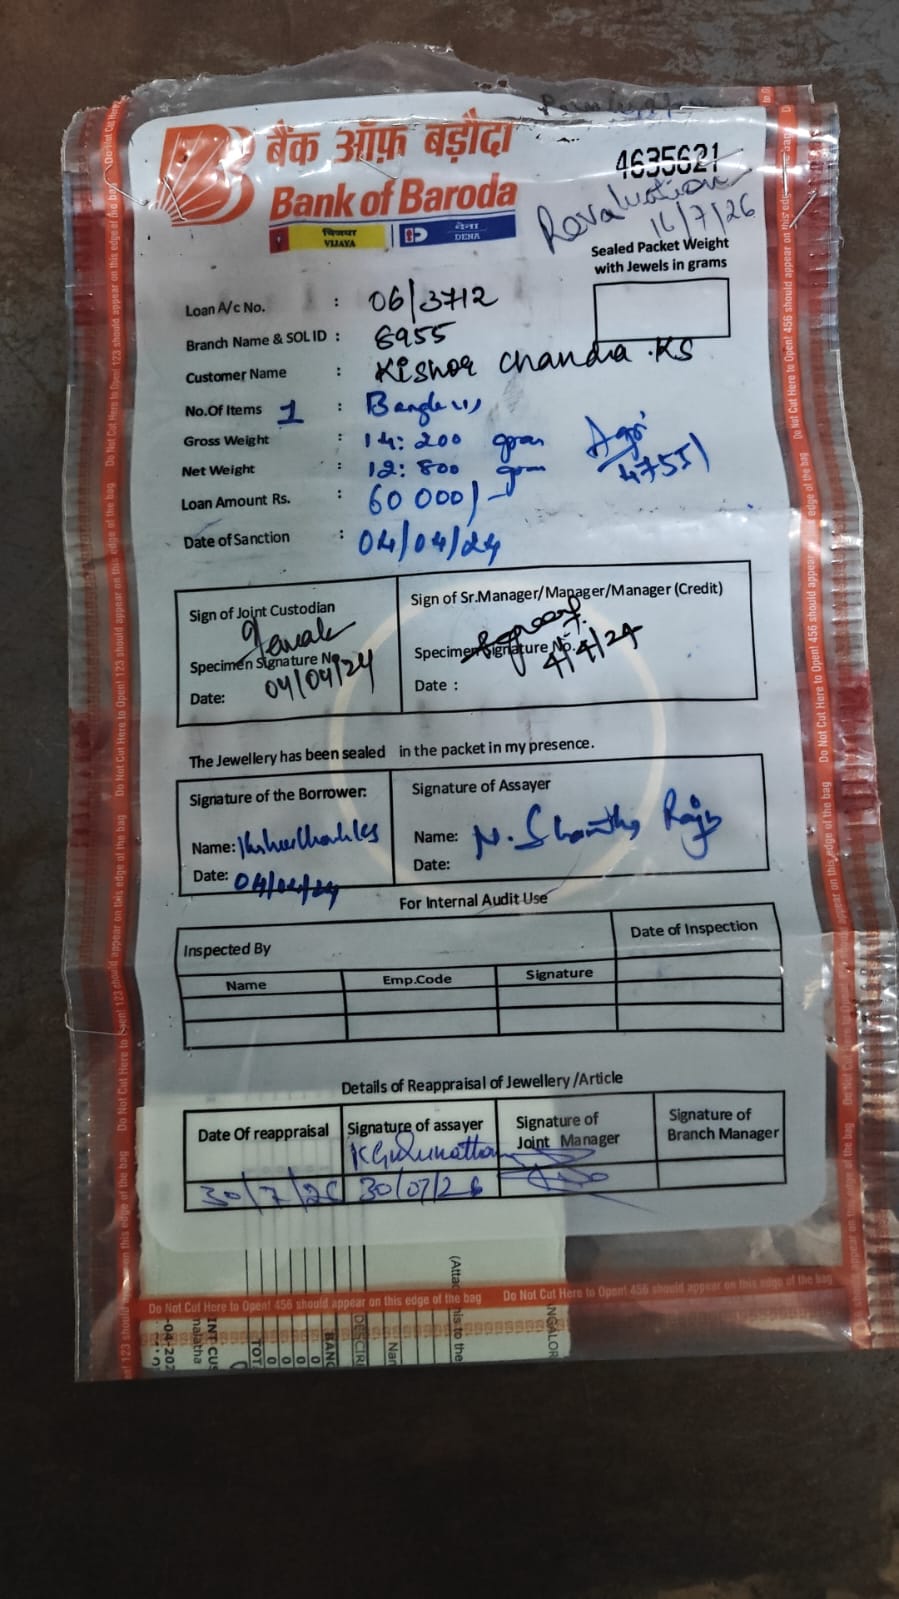 बैंक ऑफ़ बड़ौदा
Bank of Baroda
विजया VIJAYA
देना DENA
4635621
Revaluation
16/7/26
Sealed Packet Weight
with Jewels in grams
Loan A/c No. : 06/3712
Branch Name & SOL ID : 8955
Customer Name : Kishor Chandra .KS
No.Of Items 1 : Bangle
Gross Weight : 14:200 gram
Net Weight : 12:800 gram
47551
Loan Amount Rs. : 60000/-
Date of Sanction : 04/04/24
Sign of Joint Custodian
Specimen Signature N
Date: 04/04/24
Sign of Sr.Manager/Manager/Manager (Credit)
Specimen Signature No.
4/4/24
Date :
The Jewellery has been sealed in the packet in my presence.
Signature of the Borrower:
Name:
Date: 04/04/24
Signature of Assayer
Name: N. Shantha Raju
Date:
For Internal Audit Use
Inspected By
Date of Inspection
Name Emp.Code Signature
Details of Reappraisal of Jewellery /Article
Date Of reappraisal Signature of assayer Signature of Joint Manager Signature of Branch Manager
30/7/26 30/07/26
Do Not Cut Here to Open! 456 should appear on this edge of the bag Do Not Cut Here to Open! 456 should appear on this edge of the bag
Do Not Cut Here to Open! 123 should appear on this edge of the bag
Do Not Cut Here to Open! 456 should appear on this edge of the bag